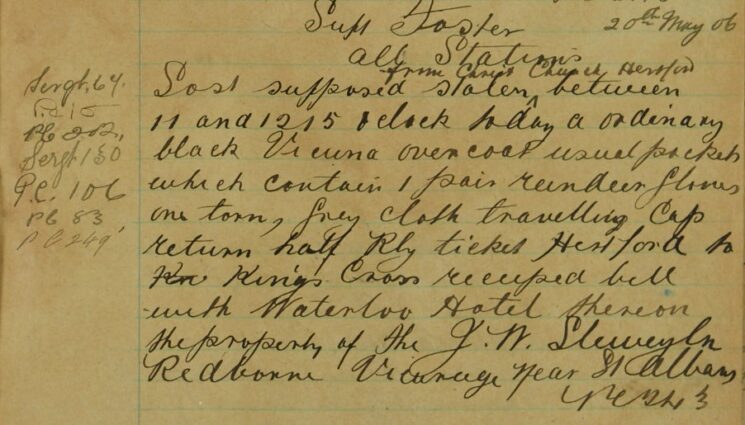 Supt Foster
20th May 06
all Stations
from Christ Church, Hertford
Lost supposed stolen, between
11 and 12 15 oclock today a ordinary
black Vicuna overcoat usual pockets
which contain 1 pair reindeer gloves
one torn, grey cloth travelling cap
return half Rly ticket Hertford to
Kings Cross receipted bill
with Waterloo Hotel thereon
the property of the J. W. Llewelyn
Redborne Vicarage near St Albans
Sergt. 64.
P.C. 15
PC 202,
Sergt 130
P.C. 106
PC 83
PC 249